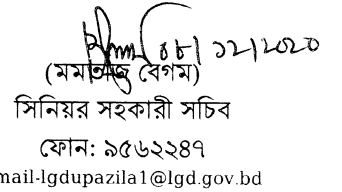 ০৮/১২/২০২০
(মমতাজ বেগম)
সিনিয়র সহকারী সচিব
ফোন: ৯৫৬২২৪৭
mail-lgdupazila1@lgd.gov.bd